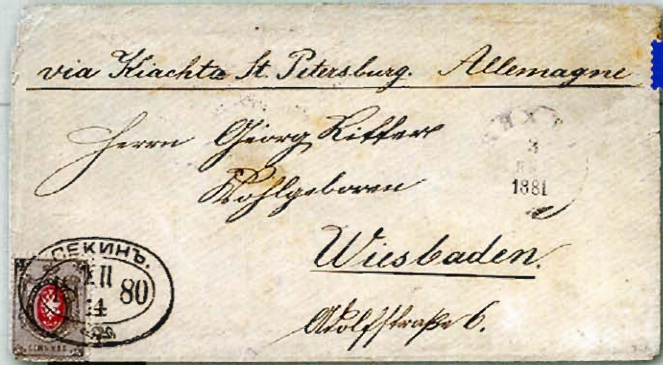 via Kiachta St. Petersburg. Allemagne
Herrn Georg Ritter
Wohlgeboren
Wiesbaden.
Adolfstraße 6.
3
1881
ПЕКИНЪ.
XII
80